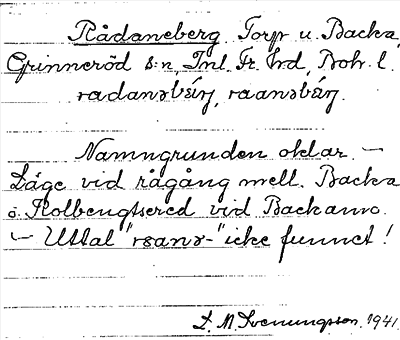 Rådaneberg Torp u. Backa,
Grinneröd s:n, Inl. Fr. hd, Boh. l.
radanəbǽrj, raanəbǽrj.
Namngrunden oklar. —
Läge vid rågång mell. Backa
o. Kolbengtsered vid Backamo.
— Uttal "rsanə-" icke funnet!
D. M. Svenungsson. 1941.